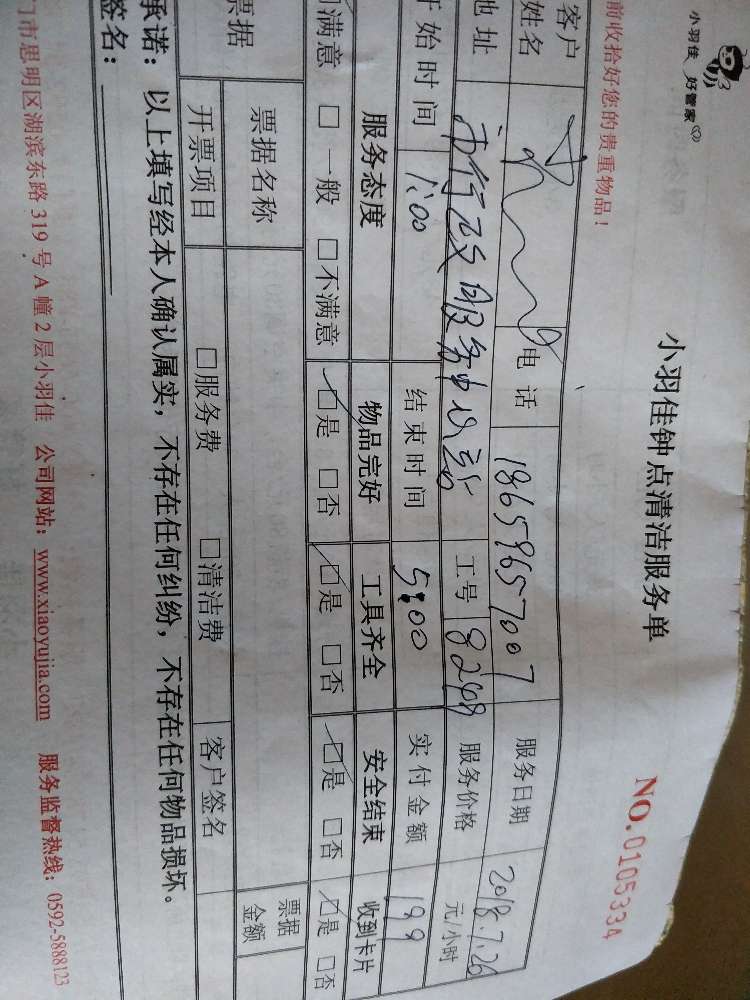 小羽佳 好管家
前收拾好您的贵重物品！
小羽佳钟点清洁服务单
NO.0105334
客户姓名 电话 18659657007 服务日期 2018.7.26
地址 市行政服务中心 工号 8248 服务价格 元/小时
开始时间 1:00 结束时间 5:00 实付金额 199
服务态度 物品完好 工具齐全 安全结束 收到卡片
满意 □一般 □不满意 ☑是 □否 ☑是 □否 ☑是 □否 ☑是 □否
票据 票据名称 票据金额
开票项目 □服务费 □清洁费 客户签名
承诺：以上填写经本人确认属实，不存在任何纠纷，不存在任何物品损坏。
签名：
门市思明区湖滨东路 319 号 A 幢 2 层小羽佳 公司网站：www.xiaoyujia.com 服务监督热线：0592-5888123